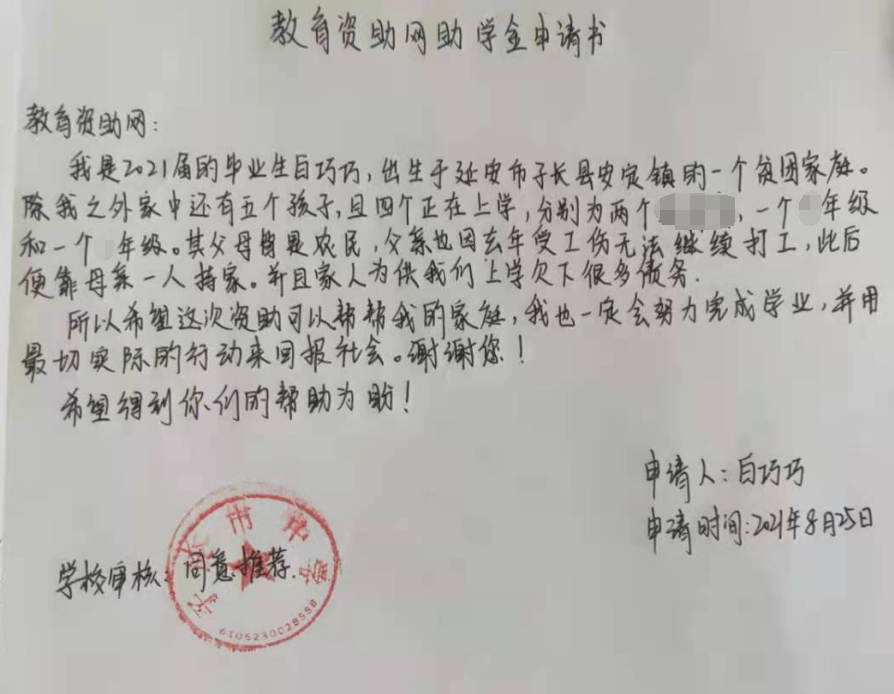 教育资助网助学金申请书
教育资助网：
我是2021届的毕业生白巧巧，出生于延安市子长县安定镇的一个贫困家庭。
除我之外家中还有五个孩子，且四个正在上学，分别为两个，一个年级
和一个年级。其父母皆是农民，父亲也因去年受工伤无法继续打工，此后
便靠母亲一人持家。并且家人为供我们上学欠下很多债务.
所以希望这次资助可以帮帮我的家庭，我也一定会努力完成学业，并用
最切实际的行动来回报社会。谢谢您！
希望得到你们的帮助为盼！
申请人：白巧巧
申请时间：2021年8月25日
学校审核：同意推荐.
子长市中学
6105230028558